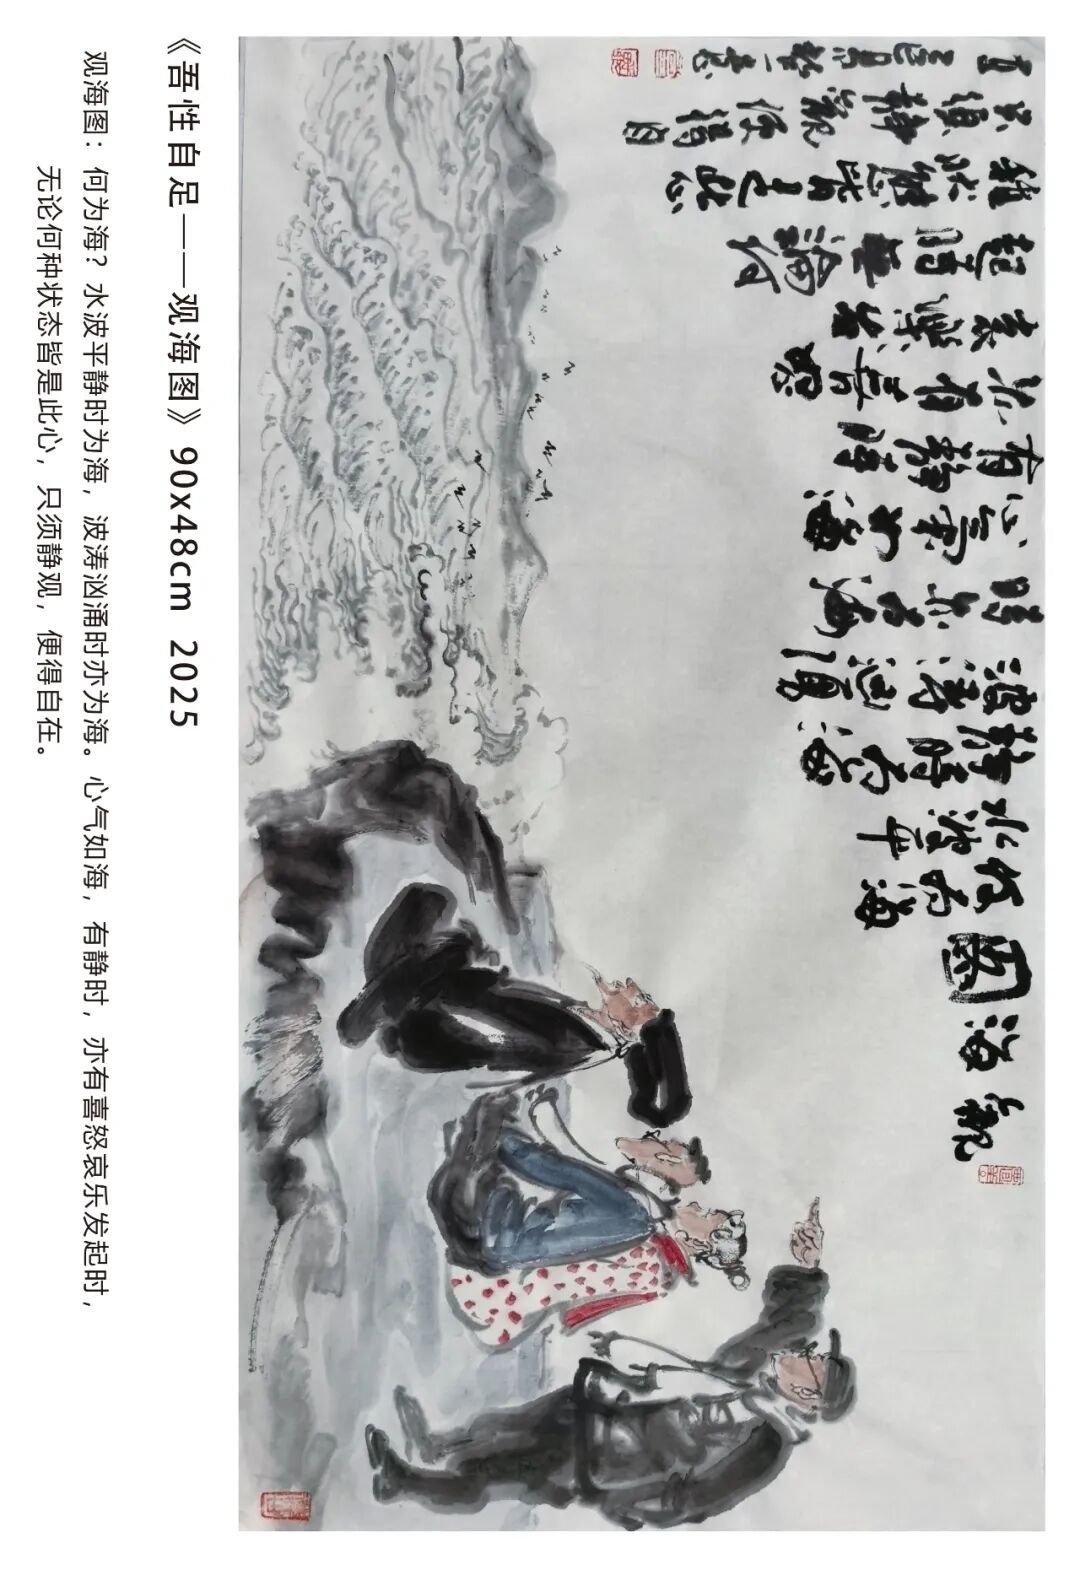 觀海圖
何為海
水波平
静時為海
波濤洶湧
時亦為海
心氣如海
有静時
亦有喜怒
哀樂發
起時無論何
種狀態皆是此心
只須静觀便得自
在 乙巳
《吾性自足——观海图》90x48cm 2025
观海图：何为海？水波平静时为海，波涛汹涌时亦为海。心气如海，有静时，亦有喜怒哀乐发起时，
无论何种状态皆是此心，只须静观，便得自在。